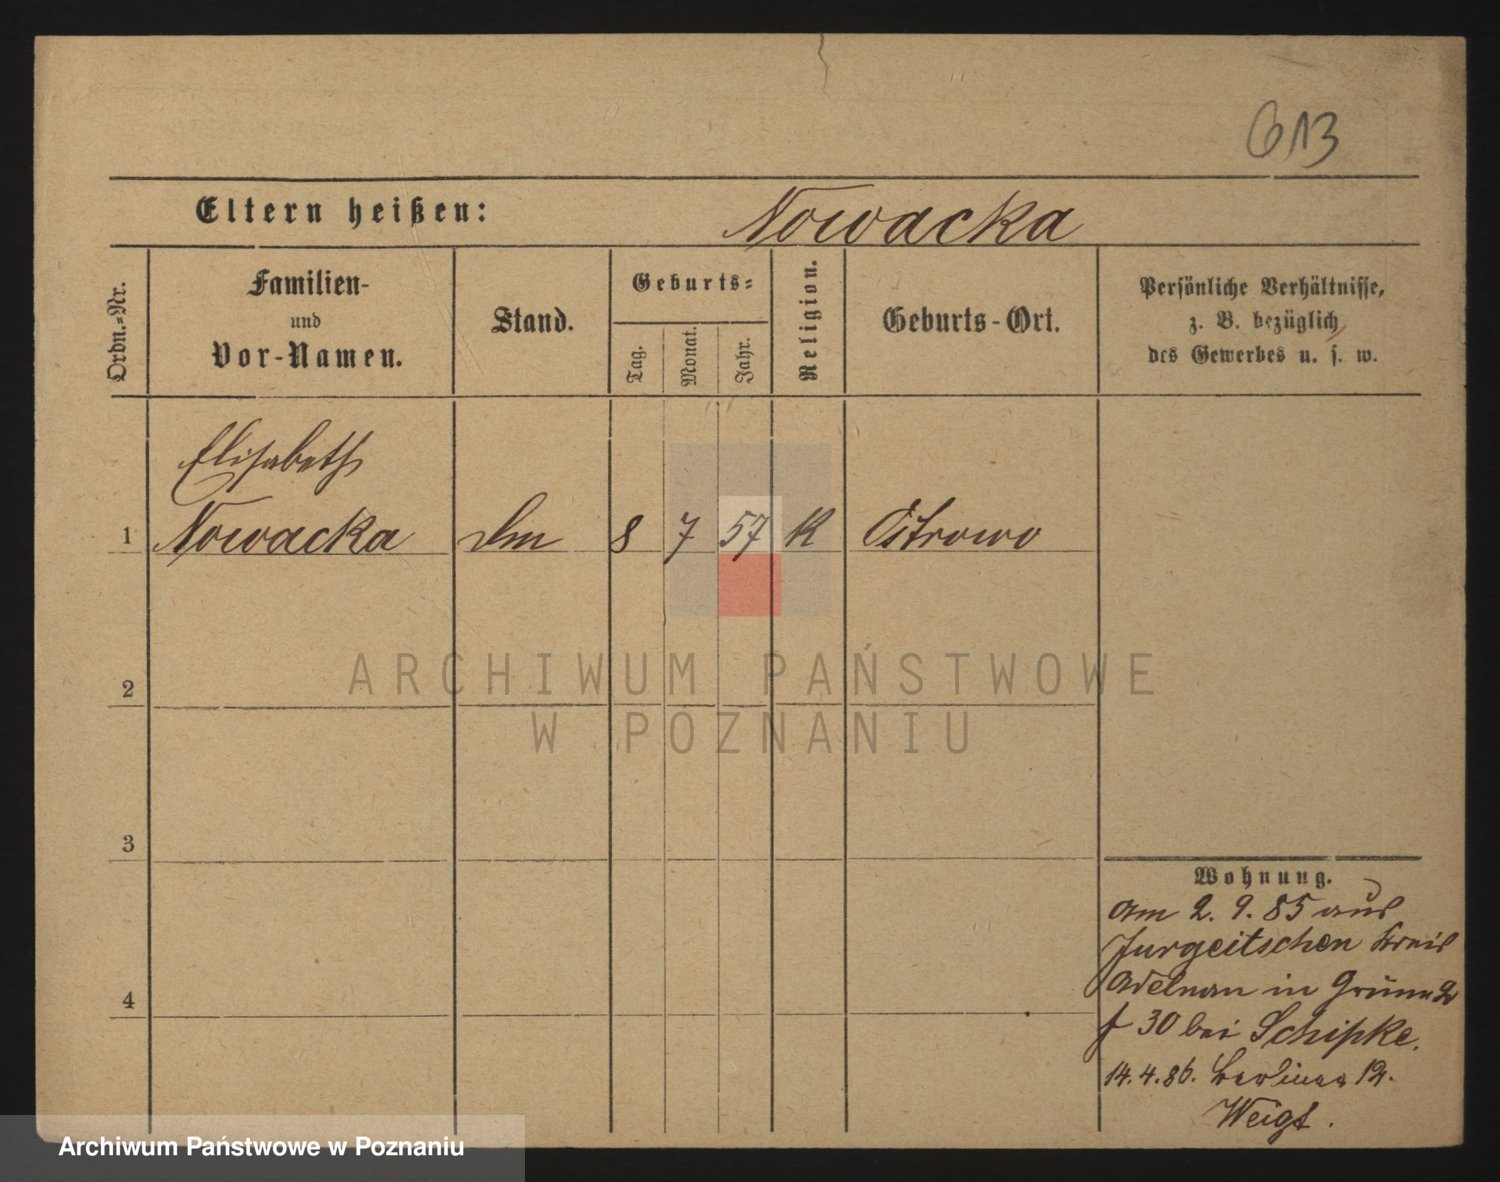 613
Eltern heißen: Nowacka
Ordn.-Nr.
Familien-
und
Vor-Namen.
Stand.
Geburts-
Tag.
Monat.
Jahr.
Religion.
Geburts-Ort.
Persönliche Verhältnisse,
z. B. bezüglich
des Gewerbes u. s. w.
Elisabeth
1 Nowacka Dm 8 7 57 K Ostrowo
2
3
4
Wohnung.
am 2. 9. 85 aus
Jurgeitschen Kreis
Adelnau in
30 bei Schipke.
14. 4. 86. Berliner 12.
Weigt.
ARCHIWUM PAŃSTWOWE
W POZNANIU
Archiwum Państwowe w Poznaniu